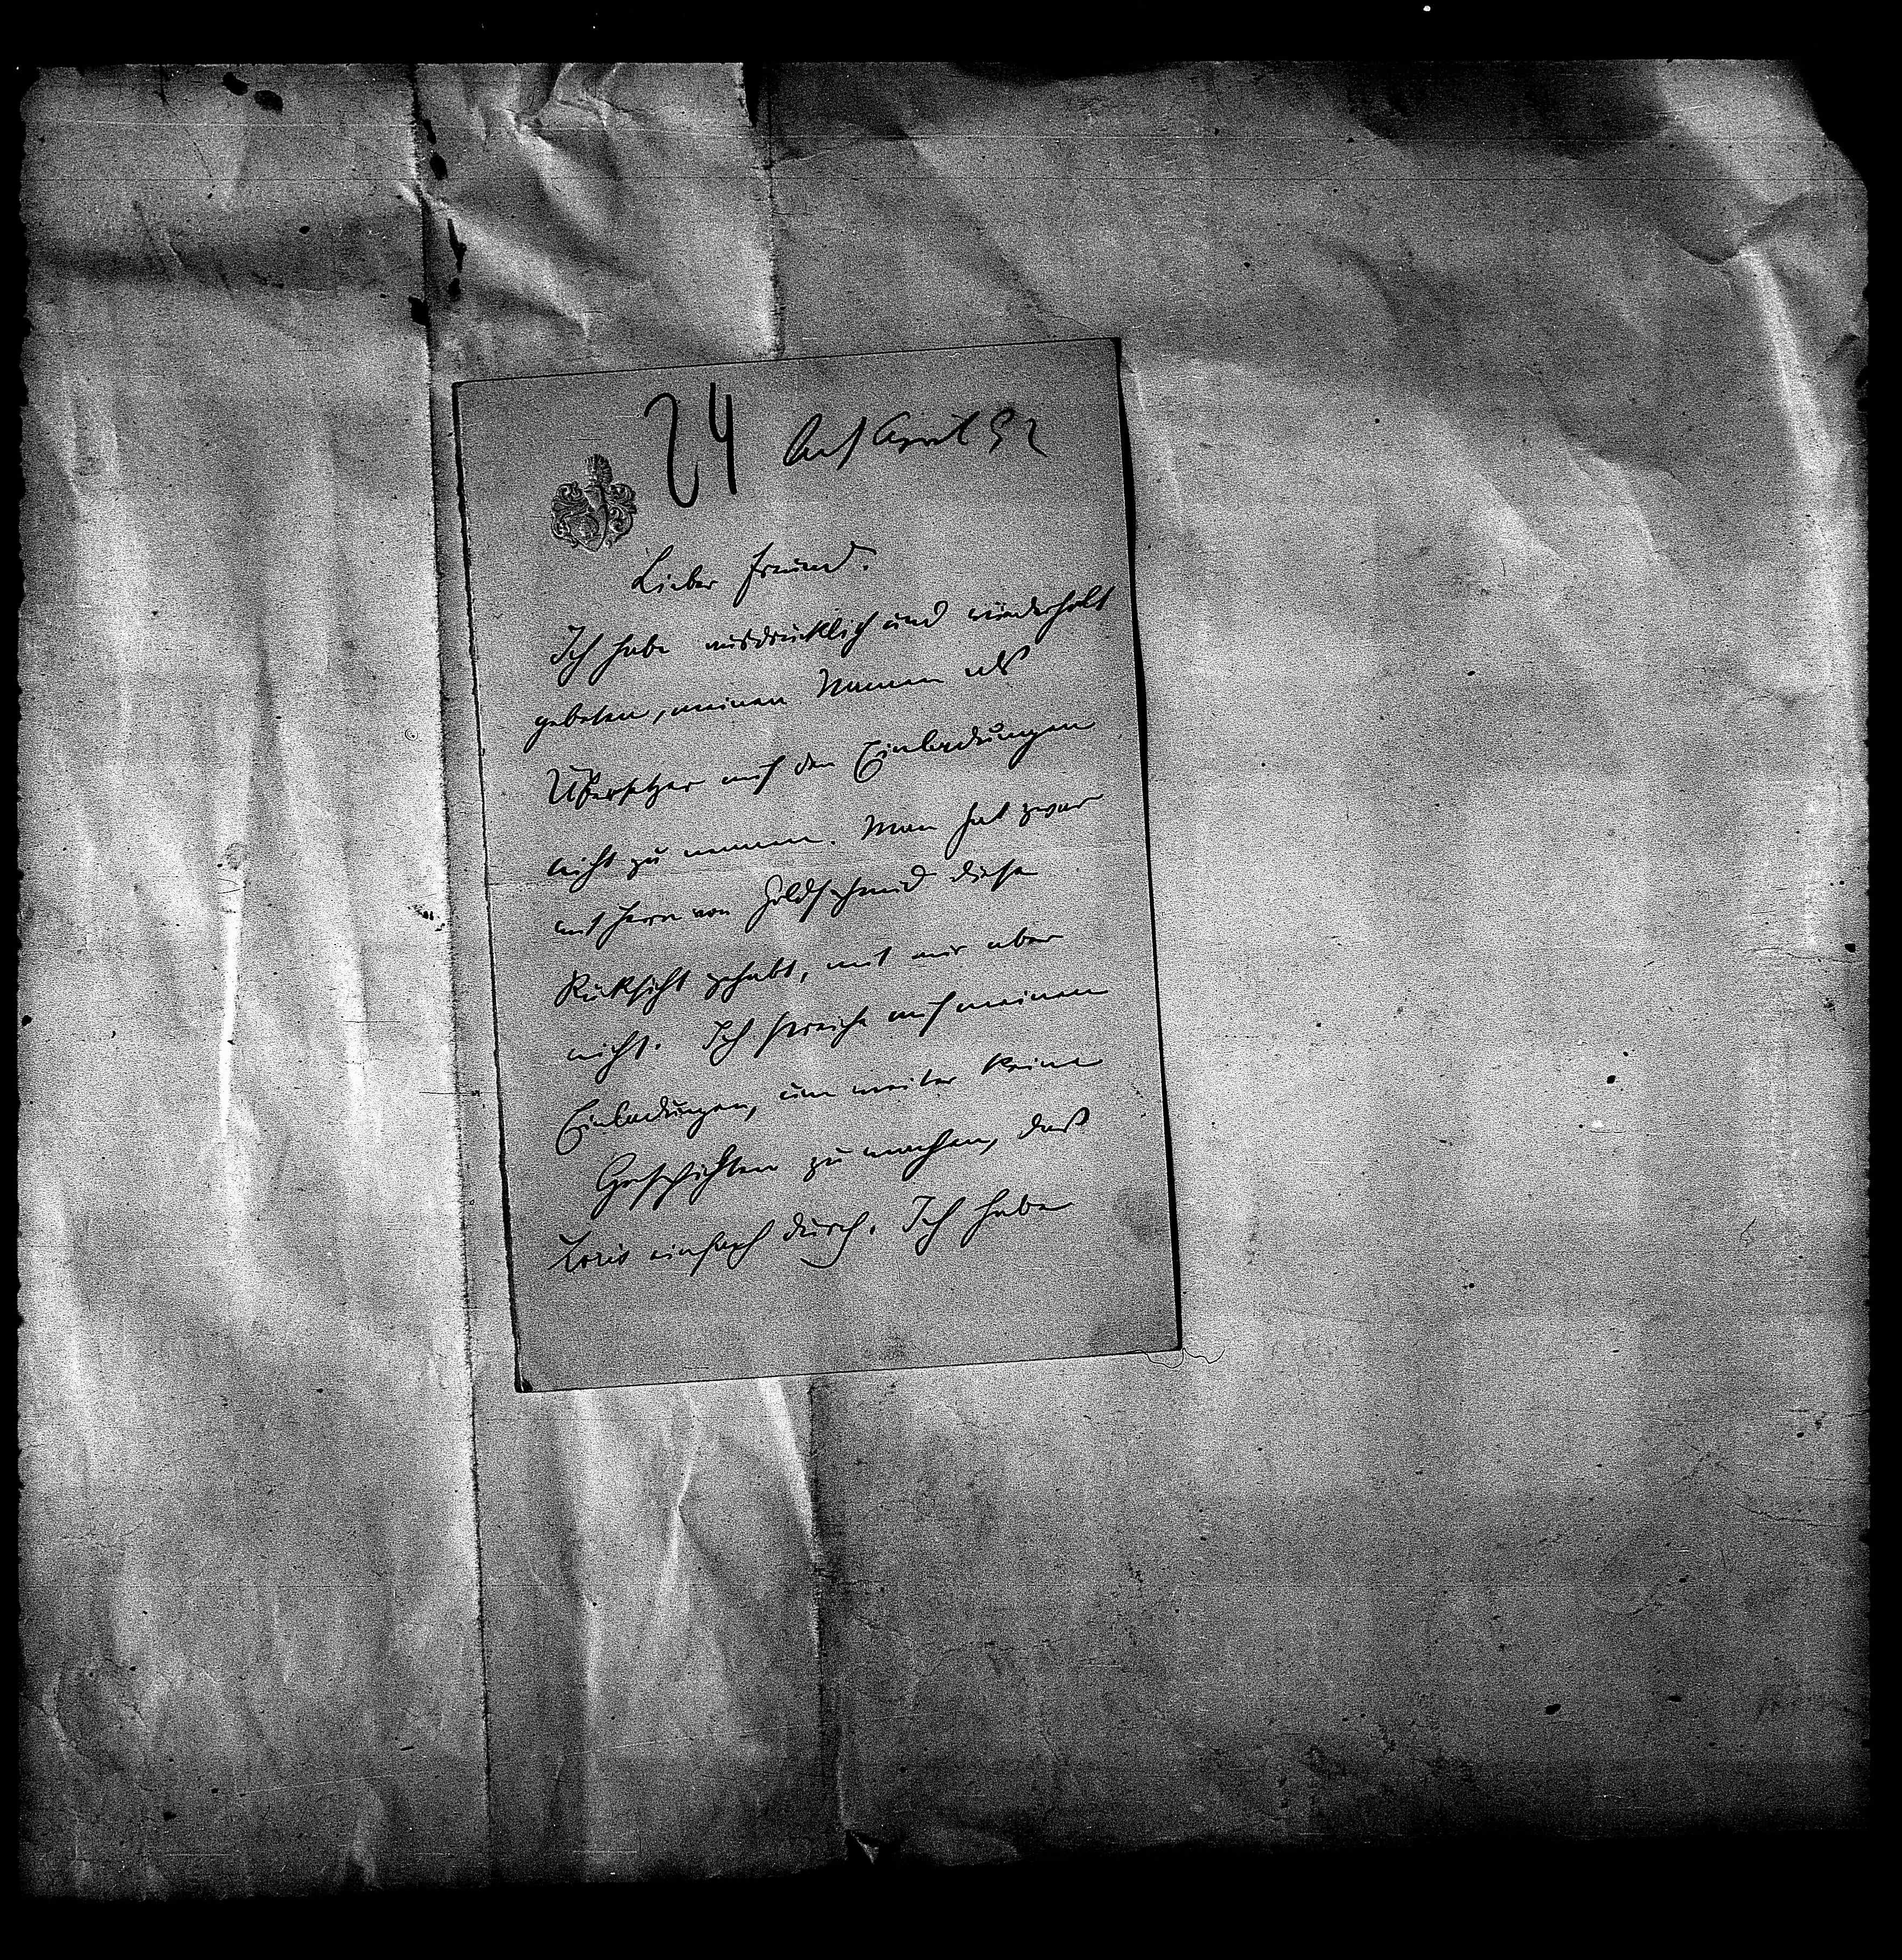 24 Anf April 92
Lieber Freund.
Ich habe ausdrücklich und wiederholt
gebeten, meinen Namen als
Übersetzer auf den Einladungen
nicht zu nennen. Man hat zwar
mit Herrn von Goldschmid diese
Rücksicht gehabt, mit mir aber
nicht. Ich streiche auf meinen
Einladungen, um weiter keine
Geschichten zu machen, das
Loris einfach durch. Ich habe